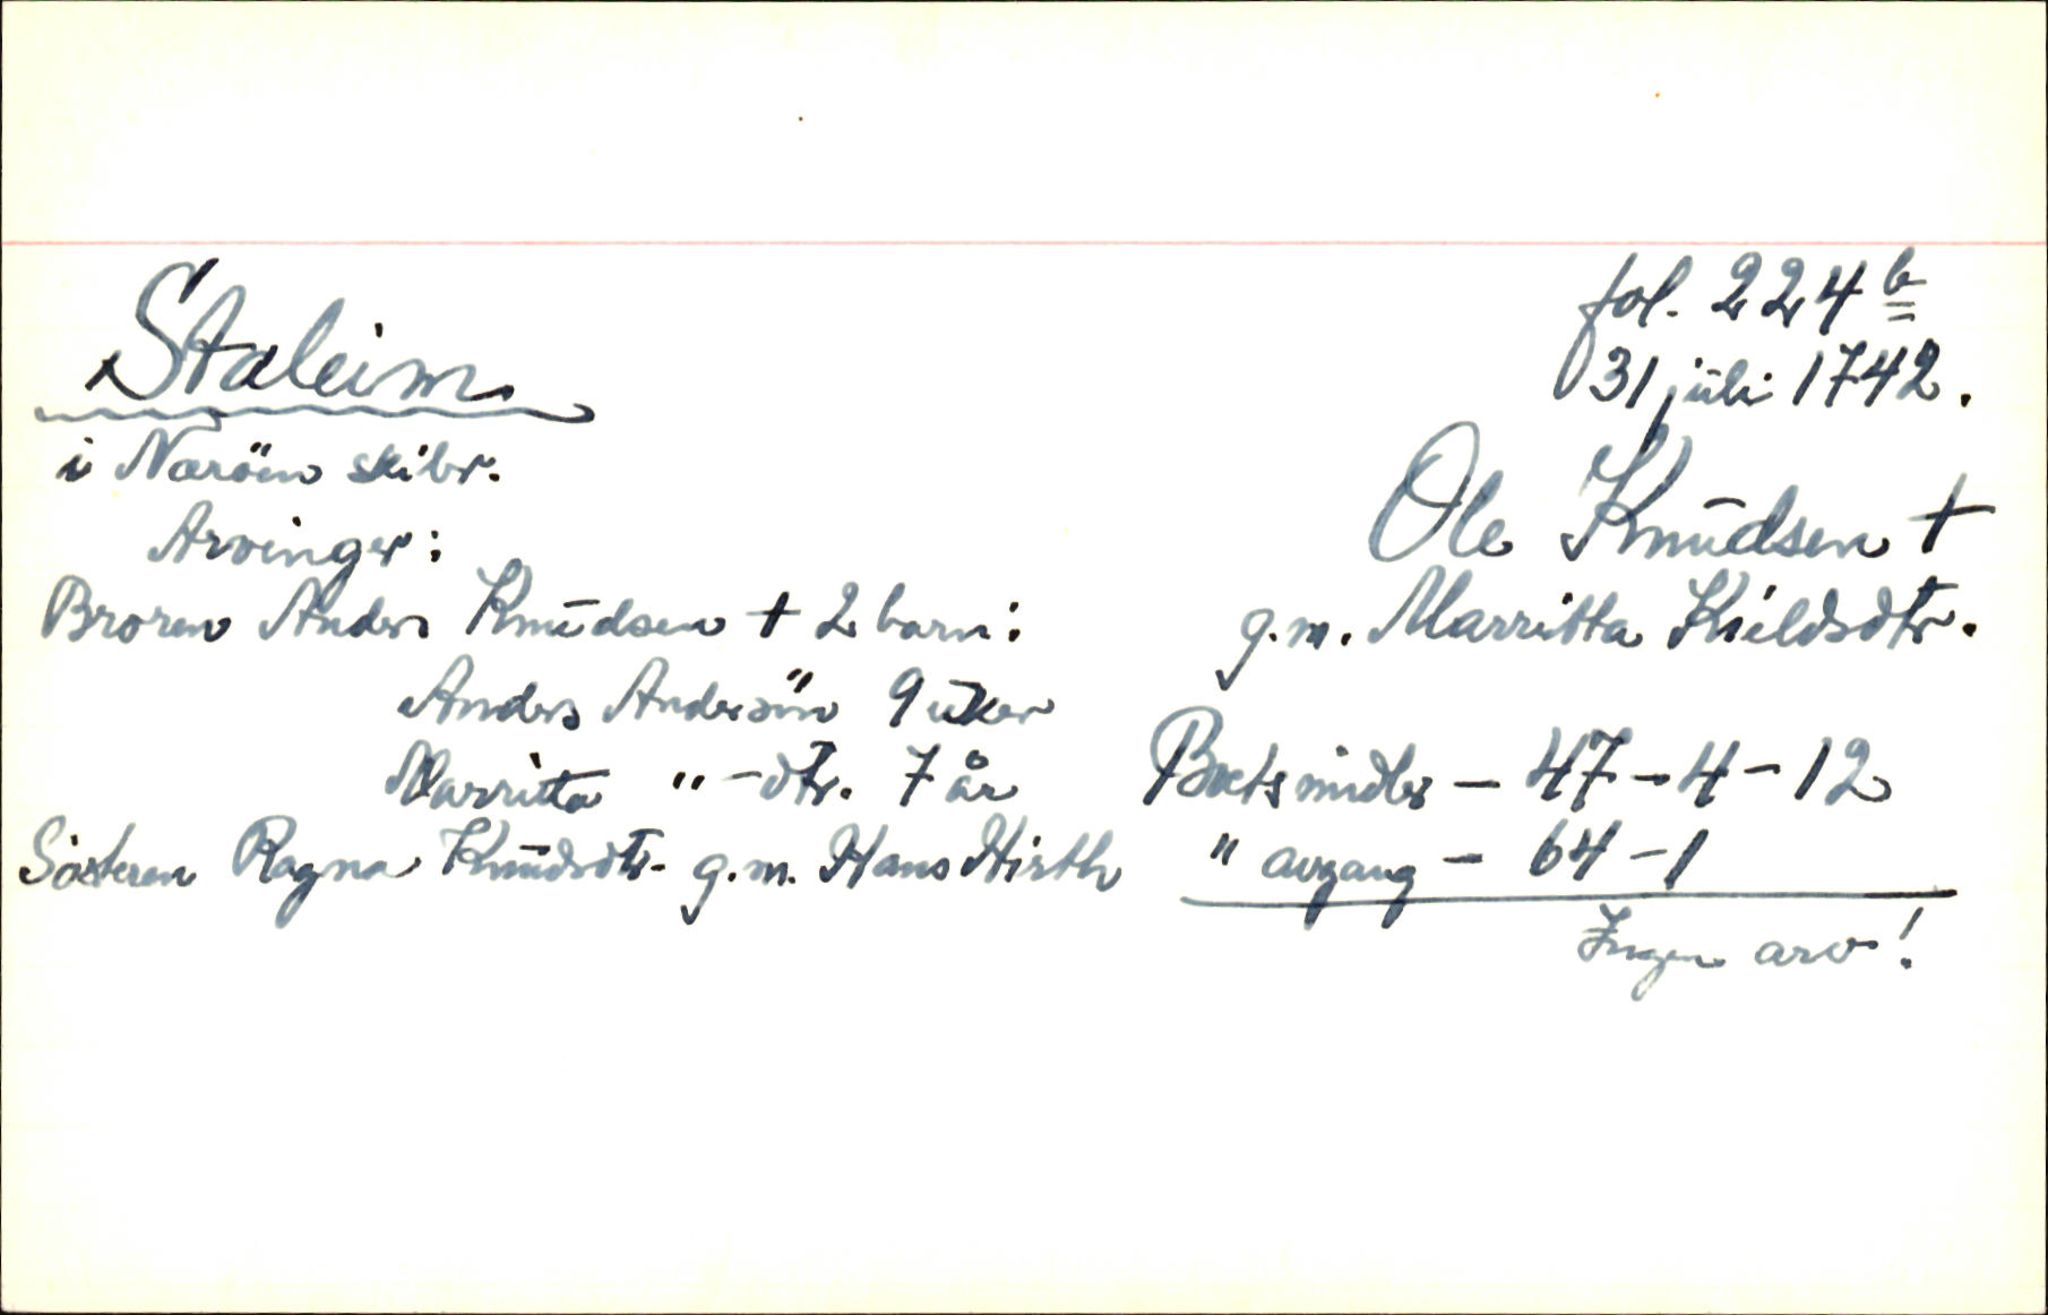 Staleim
i Naröen skibr.
Arvinger:
Broren Anders Knudsen + 2 barn:
Anders Andersön 9 uker
Marritta " - dtr. 7 år
Sösteren Ragna Knudsdtr. g.m. Hans Hirth
fol. 224 b
31 juli 1742.
Ole Knudsen +
g.m. Marritta Kieldsdtr.
Boets midler - 47 - 4 - 12
" avgang - 64 - 1
Ingen arv!